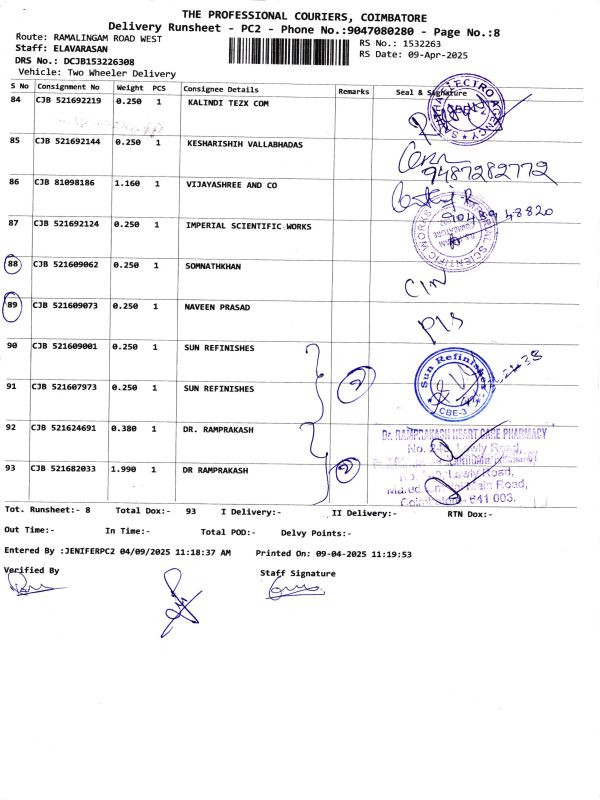 THE PROFESSIONAL COURIERS, COIMBATORE
Delivery Runsheet - PC2 - Phone No.:9047080280 - Page No.:8
Route: RAMALINGAM ROAD WEST
RS No.: 1532263
Staff: ELAVARASAN
RS Date: 09-Apr-2025
DRS No.: DCJB153226308
Vehicle: Two Wheeler Delivery
S No Consignment No Weight PCS Consignee Details Remarks Seal & Signature
84 CJB 521692219 0.250 1 KALINDI TEZX COM
85 CJB 521692144 0.250 1 KESHARISHIH VALLABHADAS
9487282772
86 CJB 81098186 1.160 1 VIJAYASHREE AND CO
87 CJB 521692124 0.250 1 IMPERIAL SCIENTIFIC WORKS
88 CJB 521609062 0.250 1 SOMNATHKHAN
89 CJB 521609073 0.250 1 NAVEEN PRASAD
90 CJB 521609001 0.250 1 SUN REFINISHES
91 CJB 521607973 0.250 1 SUN REFINISHES
2
Sun Refinishes
CBE-3
92 CJB 521624691 0.380 1 DR. RAMPRAKASH
Dr. RAMPRAKASH HEART CARE PHARMACY
93 CJB 521682033 1.990 1 DR RAMPRAKASH
2
Lawly Road,
641 003.
Tot. Runsheet:- 8 Total Dox:- 93 I Delivery:- II Delivery:- RTN Dox:-
Out Time:- In Time:- Total POD:- Delvy Points:-
Entered By :JENIFERPC2 04/09/2025 11:18:37 AM Printed On: 09-04-2025 11:19:53
Verified By Staff Signature